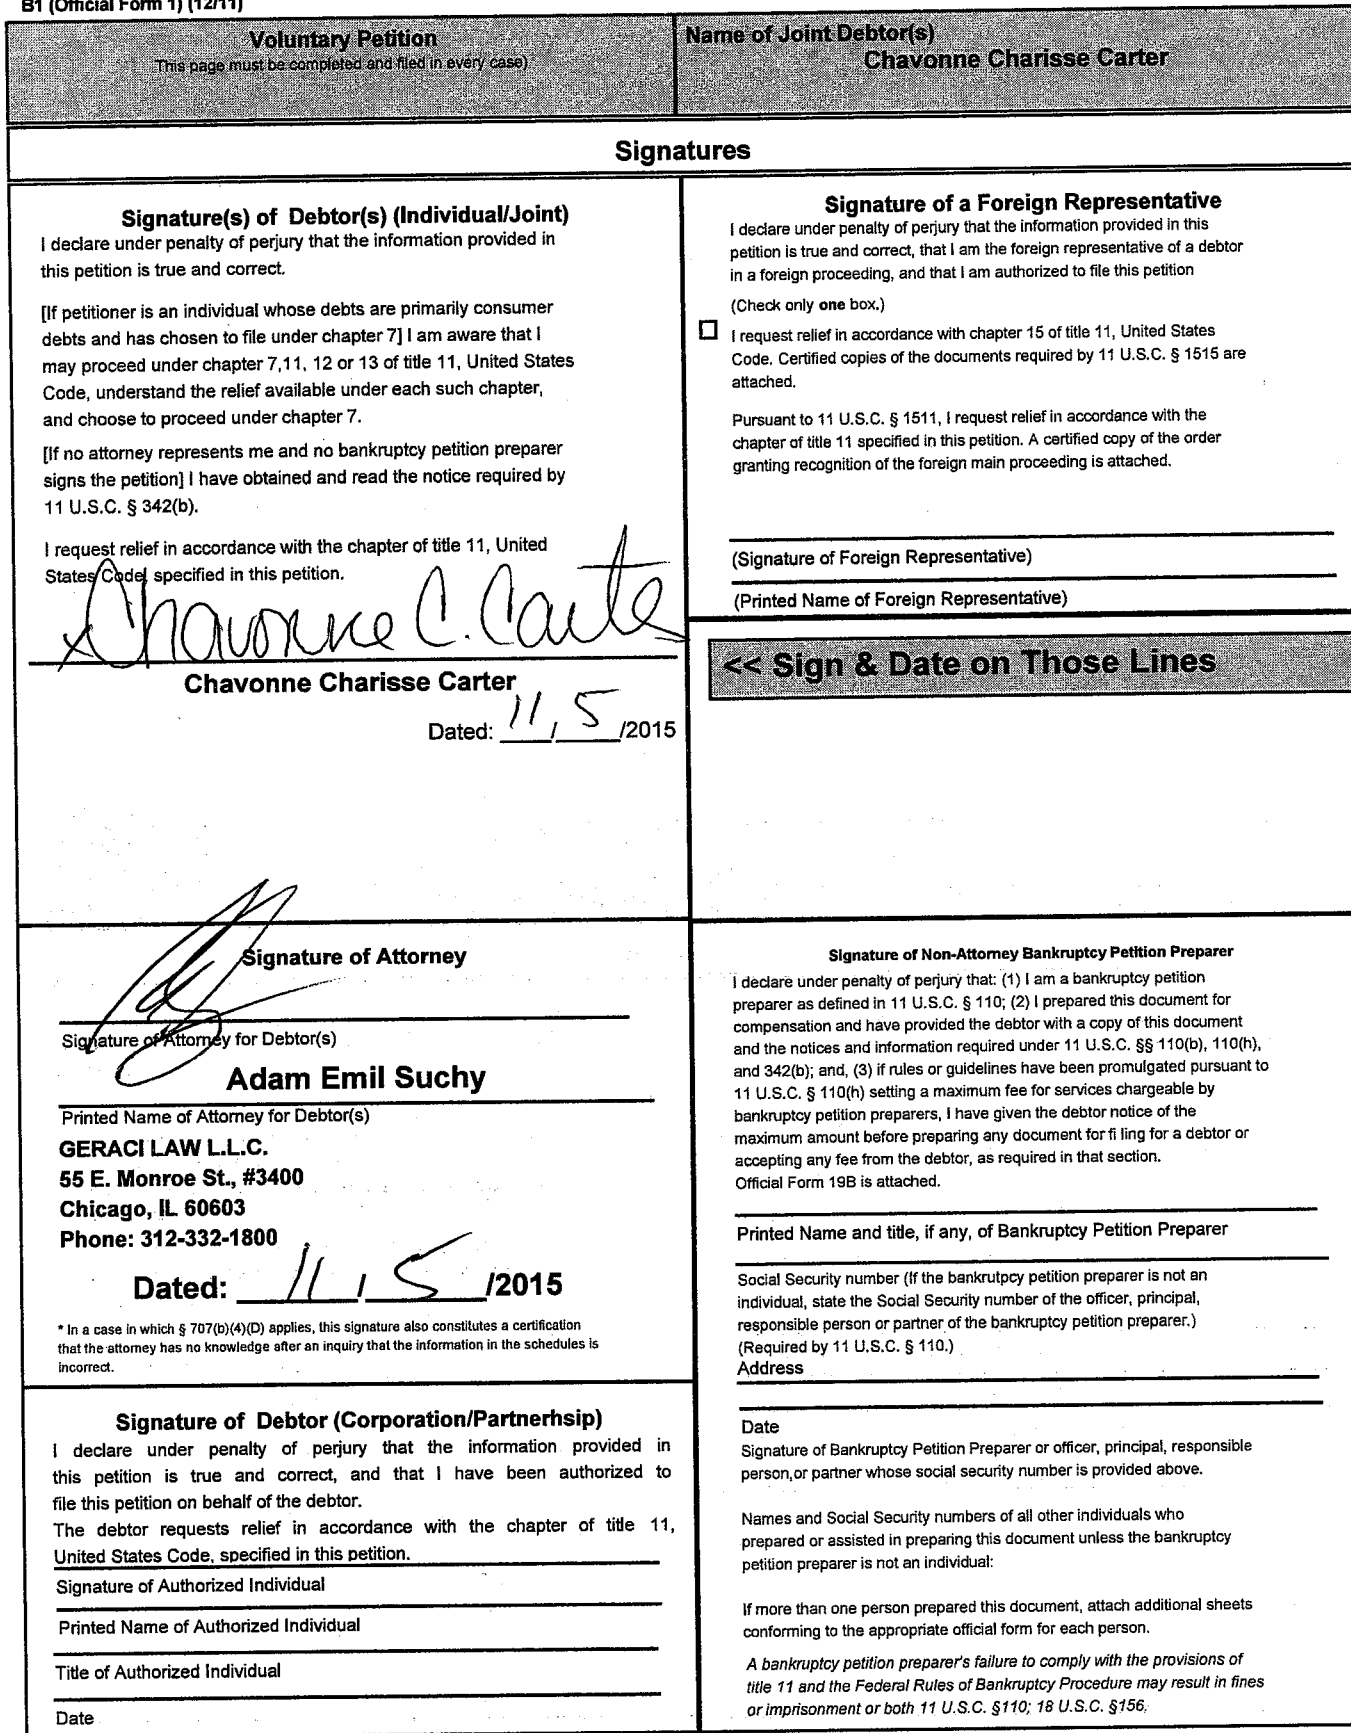 B1 (Official Form 1) (12/11)
Voluntary Petition
This page must be completed and filed in every case)
Name of Joint Debtor(s)
Chavonne Charisse Carter
Signatures
Signature(s) of Debtor(s) (Individual/Joint)
I declare under penalty of perjury that the information provided in
this petition is true and correct.
[If petitioner is an individual whose debts are primarily consumer
debts and has chosen to file under chapter 7] I am aware that I
may proceed under chapter 7,11, 12 or 13 of title 11, United States
Code, understand the relief available under each such chapter,
and choose to proceed under chapter 7.
[If no attorney represents me and no bankruptcy petition preparer
signs the petition] I have obtained and read the notice required by
11 U.S.C. § 342(b).
I request relief in accordance with the chapter of title 11, United
States Code, specified in this petition.
x Chavonne C. Carter
Chavonne Charisse Carter
Dated: 11 / 5 /2015
Signature of Attorney
Signature of Attorney for Debtor(s)
Adam Emil Suchy
Printed Name of Attorney for Debtor(s)
GERACI LAW L.L.C.
55 E. Monroe St., #3400
Chicago, IL 60603
Phone: 312-332-1800
Dated: 11 / 5 /2015
* In a case in which § 707(b)(4)(D) applies, this signature also constitutes a certification
that the attorney has no knowledge after an inquiry that the information in the schedules is
incorrect.
Signature of Debtor (Corporation/Partnerhsip)
I declare under penalty of perjury that the information provided in
this petition is true and correct, and that I have been authorized to
file this petition on behalf of the debtor.
The debtor requests relief in accordance with the chapter of title 11,
United States Code, specified in this petition.
Signature of Authorized Individual
Printed Name of Authorized Individual
Title of Authorized Individual
Date
Signature of a Foreign Representative
I declare under penalty of perjury that the information provided in this
petition is true and correct, that I am the foreign representative of a debtor
in a foreign proceeding, and that I am authorized to file this petition
(Check only one box.)
I request relief in accordance with chapter 15 of title 11, United States
Code. Certified copies of the documents required by 11 U.S.C. § 1515 are
attached.
Pursuant to 11 U.S.C. § 1511, I request relief in accordance with the
chapter of title 11 specified in this petition. A certified copy of the order
granting recognition of the foreign main proceeding is attached.
(Signature of Foreign Representative)
(Printed Name of Foreign Representative)
<< Sign & Date on Those Lines
Signature of Non-Attorney Bankruptcy Petition Preparer
I declare under penalty of perjury that: (1) I am a bankruptcy petition
preparer as defined in 11 U.S.C. § 110; (2) I prepared this document for
compensation and have provided the debtor with a copy of this document
and the notices and information required under 11 U.S.C. §§ 110(b), 110(h),
and 342(b); and, (3) if rules or guidelines have been promulgated pursuant to
11 U.S.C. § 110(h) setting a maximum fee for services chargeable by
bankruptcy petition preparers, I have given the debtor notice of the
maximum amount before preparing any document for fi ling for a debtor or
accepting any fee from the debtor, as required in that section.
Official Form 19B is attached.
Printed Name and title, if any, of Bankruptcy Petition Preparer
Social Security number (If the bankrutpcy petition preparer is not an
individual, state the Social Security number of the officer, principal,
responsible person or partner of the bankruptcy petition preparer.)
(Required by 11 U.S.C. § 110.)
Address
Date
Signature of Bankruptcy Petition Preparer or officer, principal, responsible
person,or partner whose social security number is provided above.
Names and Social Security numbers of all other individuals who
prepared or assisted in preparing this document unless the bankruptcy
petition preparer is not an individual:
If more than one person prepared this document, attach additional sheets
conforming to the appropriate official form for each person.
A bankruptcy petition preparer's failure to comply with the provisions of
title 11 and the Federal Rules of Bankruptcy Procedure may result in fines
or imprisonment or both 11 U.S.C. §110; 18 U.S.C. §156.